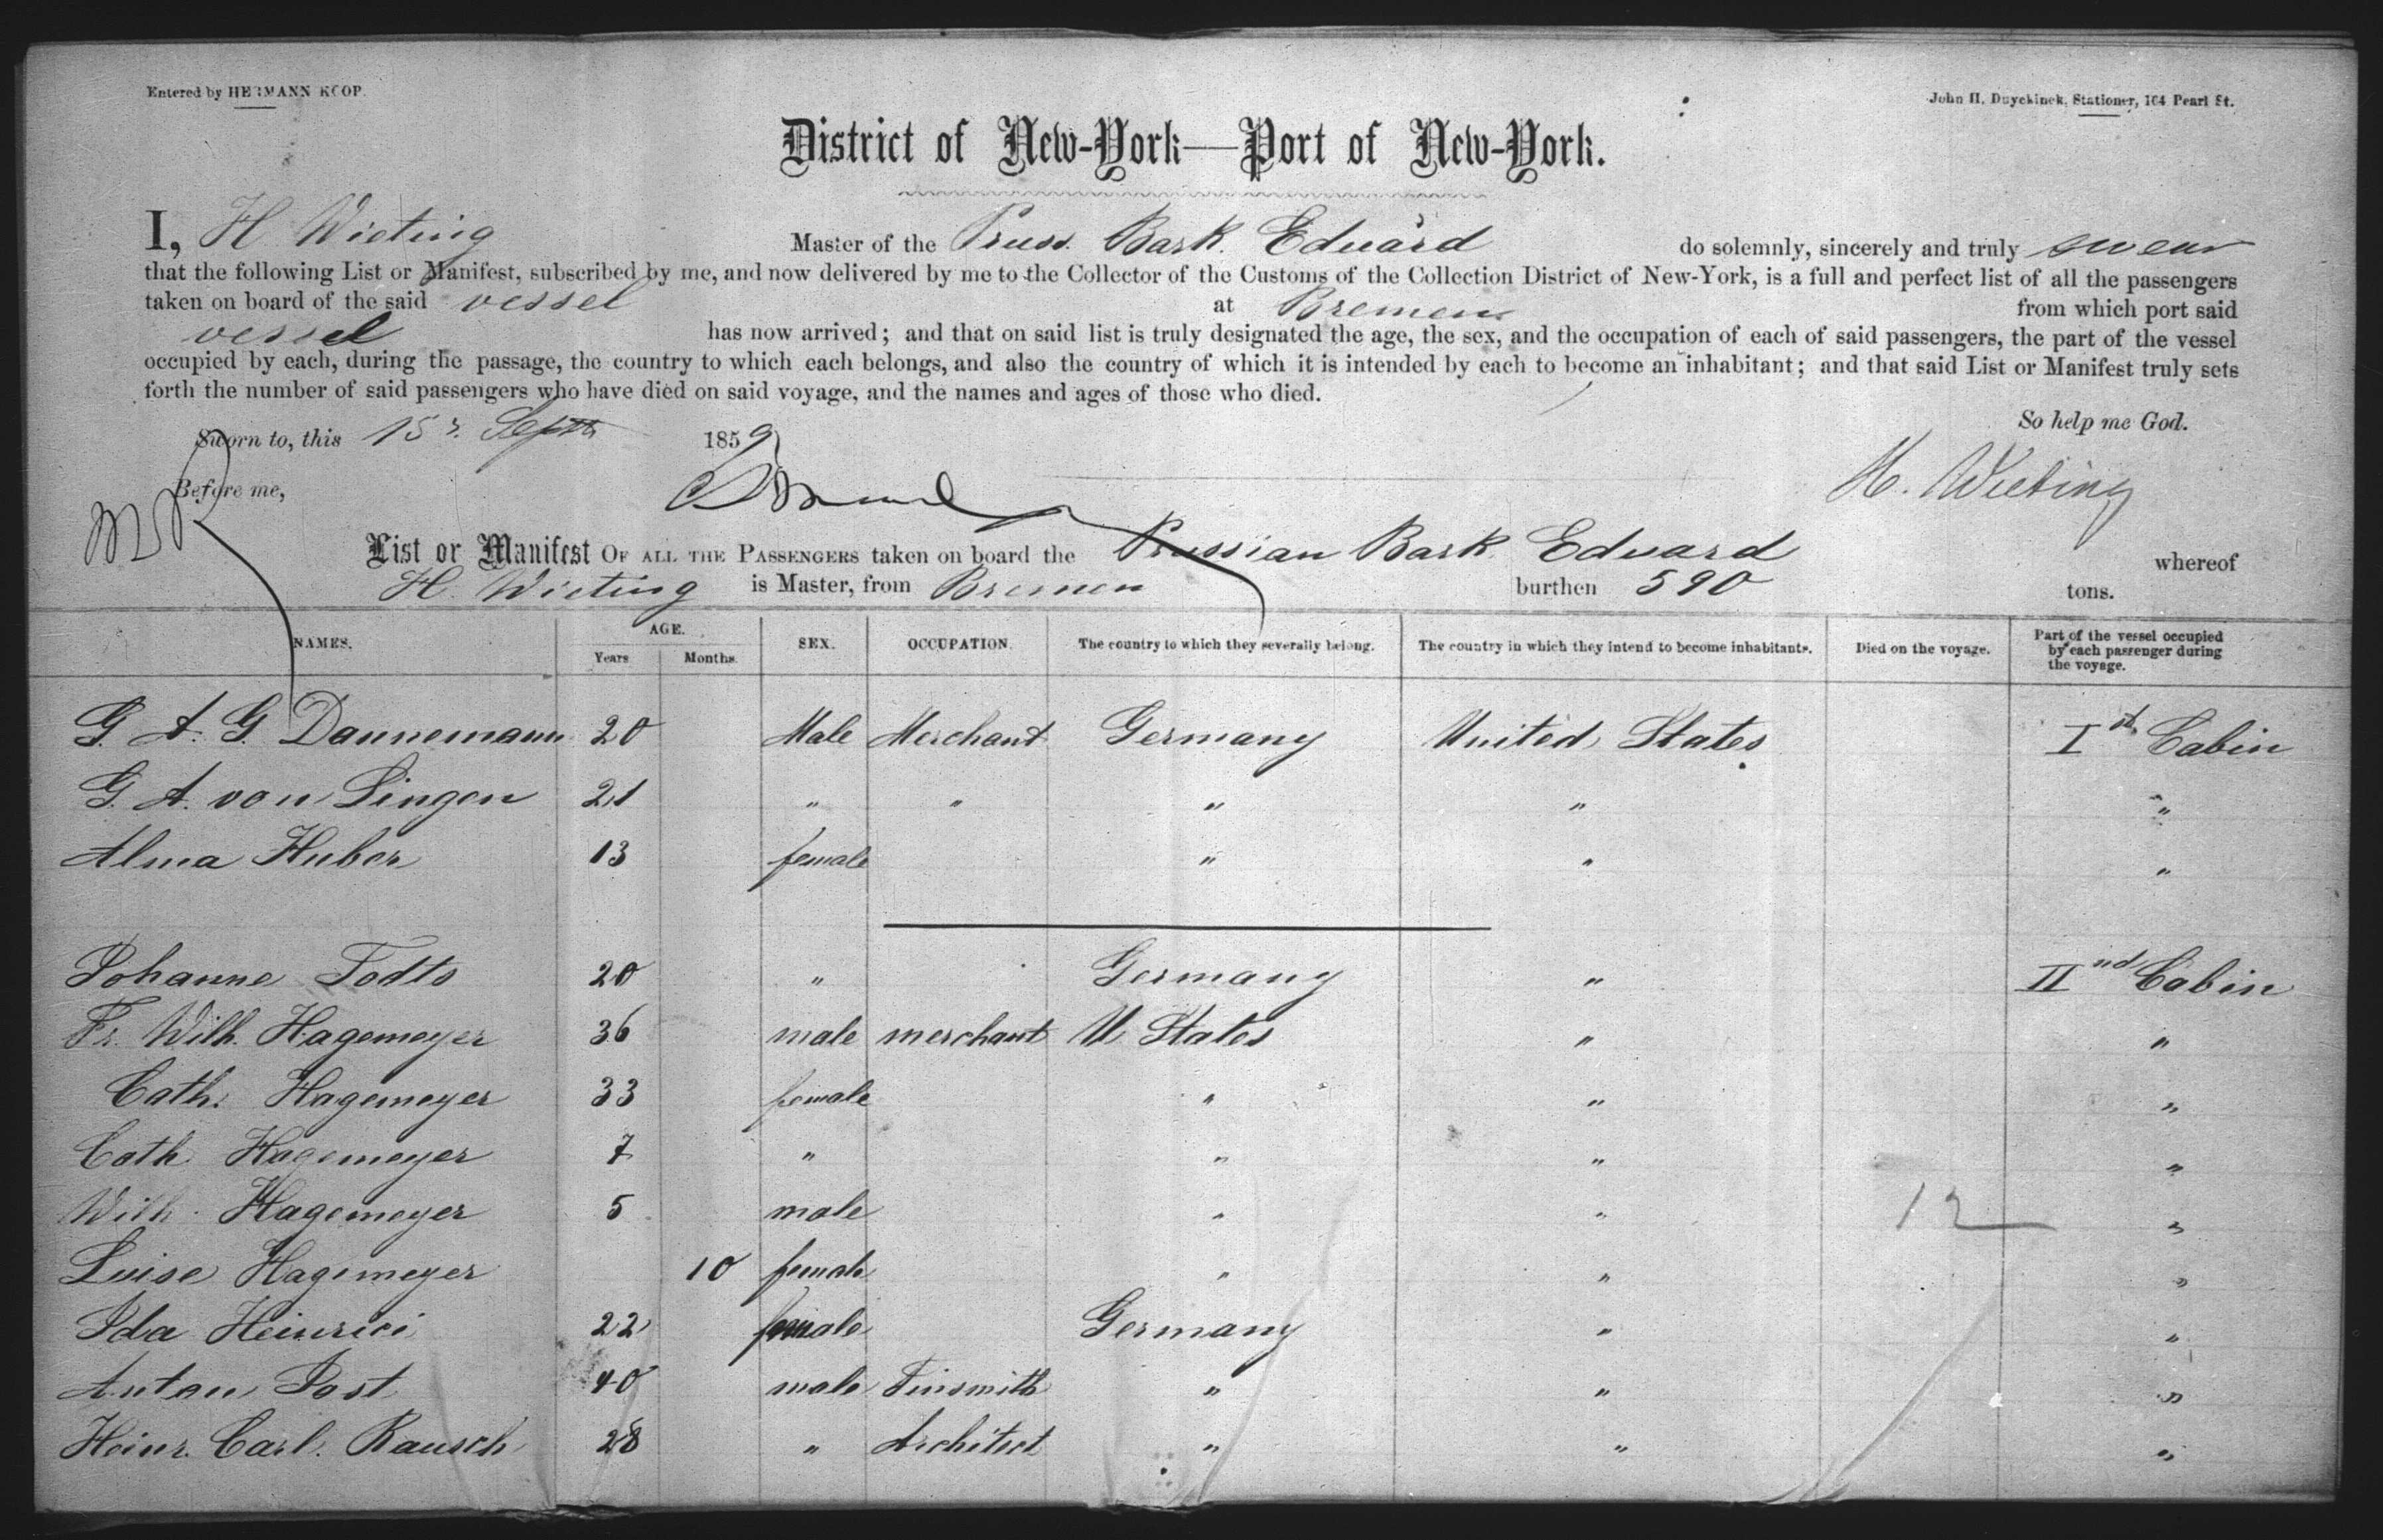 Entered by HERMANN KOOP.
John H. Duyckinck, Stationer, 164 Pearl St.
District of New-York—Port of New-York.
I, H Wieting Master of the Pruss. Bark. Eduard do solemnly, sincerely and truly swear
that the following List or Manifest, subscribed by me, and now delivered by me to the Collector of the Customs of the Collection District of New-York, is a full and perfect list of all the passengers
taken on board of the said vessel at Bremen from which port said
vessel has now arrived; and that on said list is truly designated the age, the sex, and the occupation of each of said passengers, the part of the vessel
occupied by each, during the passage, the country to which each belongs, and also the country of which it is intended by each to become an inhabitant; and that said List or Manifest truly sets
forth the number of said passengers who have died on said voyage, and the names and ages of those who died.
So help me God.
Sworn to, this 15 Septb 1859
Before me,
H. Wieting
List or Manifest OF ALL THE PASSENGERS taken on board the Prussian Bark Eduard whereof
H. Wieting is Master, from Bremen burthen 590 tons.
NAMES. AGE. Years Months. SEX. OCCUPATION. The country to which they severally belong. The country in which they intend to become inhabitants. Died on the voyage. Part of the vessel occupied by each passenger during the voyage.
G. A. G. Dannemann 20 Male Merchant Germany United States Ist Cabin
G. A. von Lingen 21 " " " " "
Alma Huber 13 female " " "
Johanne Todts 20 " Germany " IInd Cabin
Fr. Wilh. Hagemeyer 36 male merchant U States " "
Cath. Hagemeyer 33 female " " "
Cath. Hagemeyer 7 " " " "
Wilh. Hagemeyer 5 male " " 12 "
Luise Hagemeyer 10 female " " "
Ida Heinrici 22 female Germany " "
Anton Post 40 male Tinsmith " " "
Heinr. Carl. Rausch 28 " Architect " " "